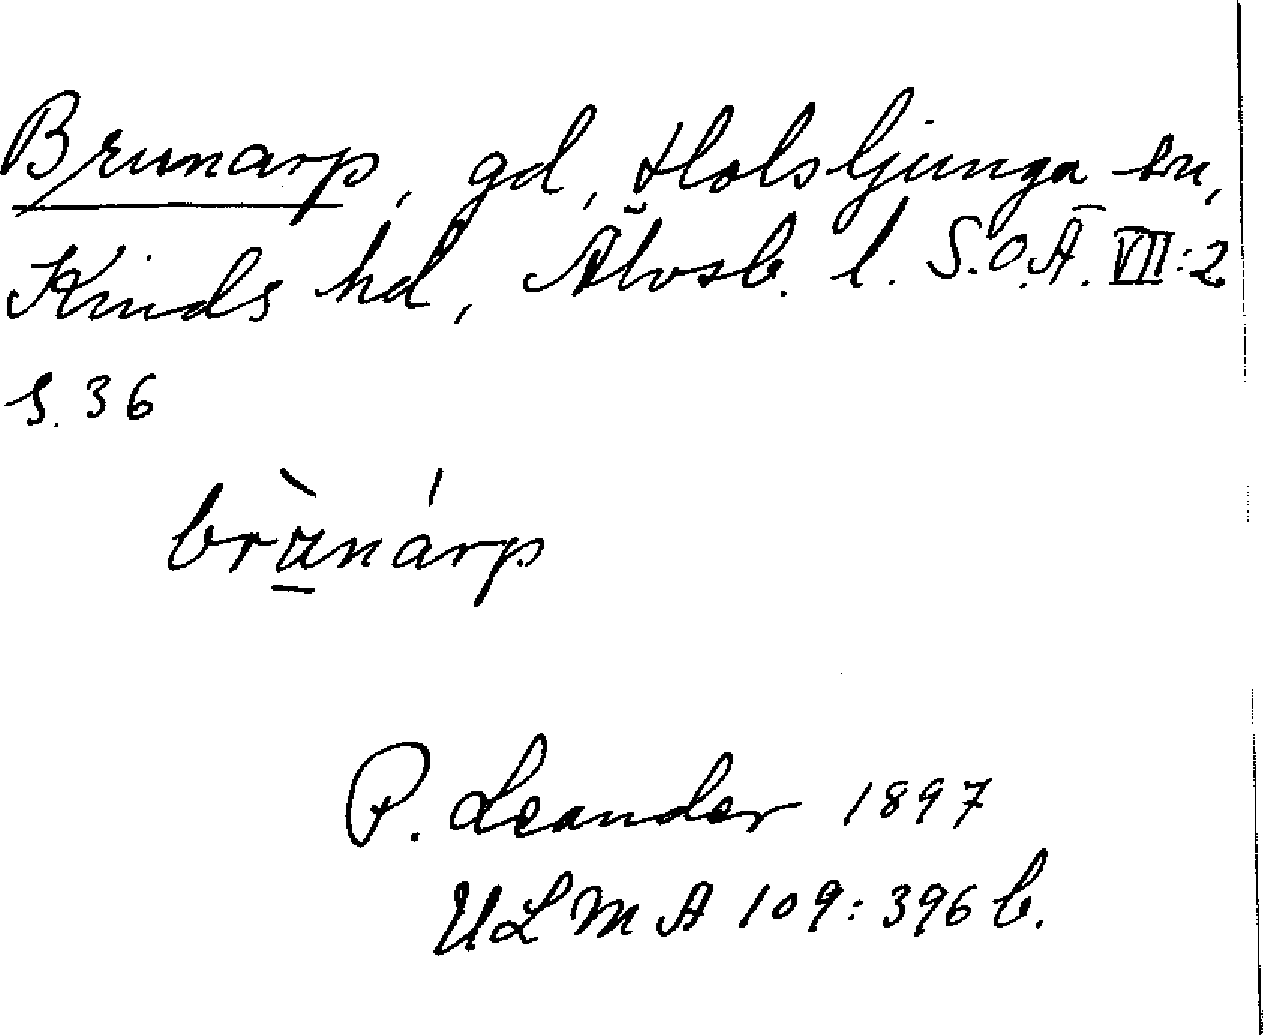 Brunarp, gd, Holsljunga sn,
Kinds hd, Älvsb. l. S.O.Ä. VII:2
S. 36
brùnárp
P. Leander 1897
ULMA 109:396 b.